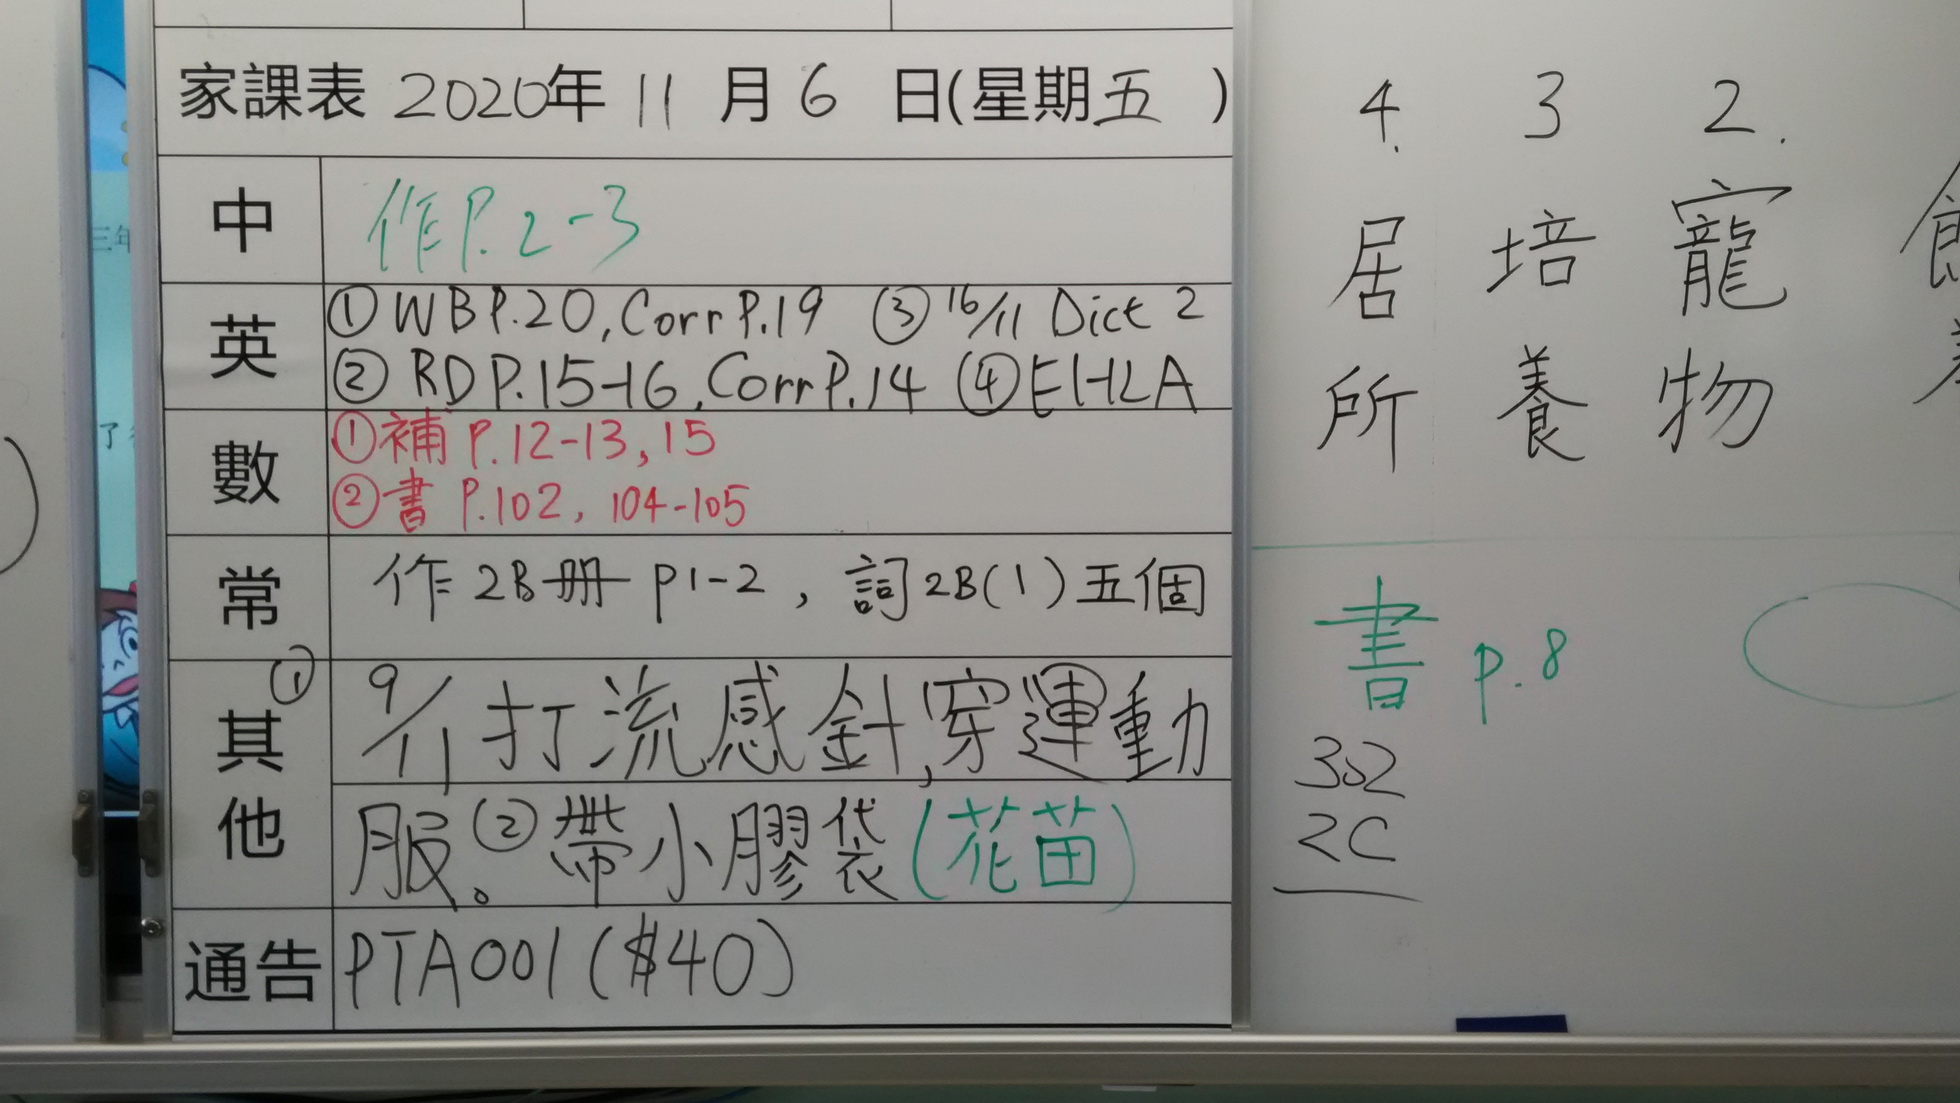 家課表 2020年 11 月 6 日(星期五 )
中
作P.2-3
英
①WBP.20,CorrP.19 ③16/11 Dict 2
②RDP.15-16,CorrP.14 ④EHLA
數
①補P.12-13,15
②書P.102,104-105
常
作2B冊 p1-2,詞2B(1)五個
其他
①9/11打流感針,穿運動
服。②帶小膠袋(花苗)
通告
PTA001($40)
2.寵物
3培養
4.居所
書 p.8
302
2C